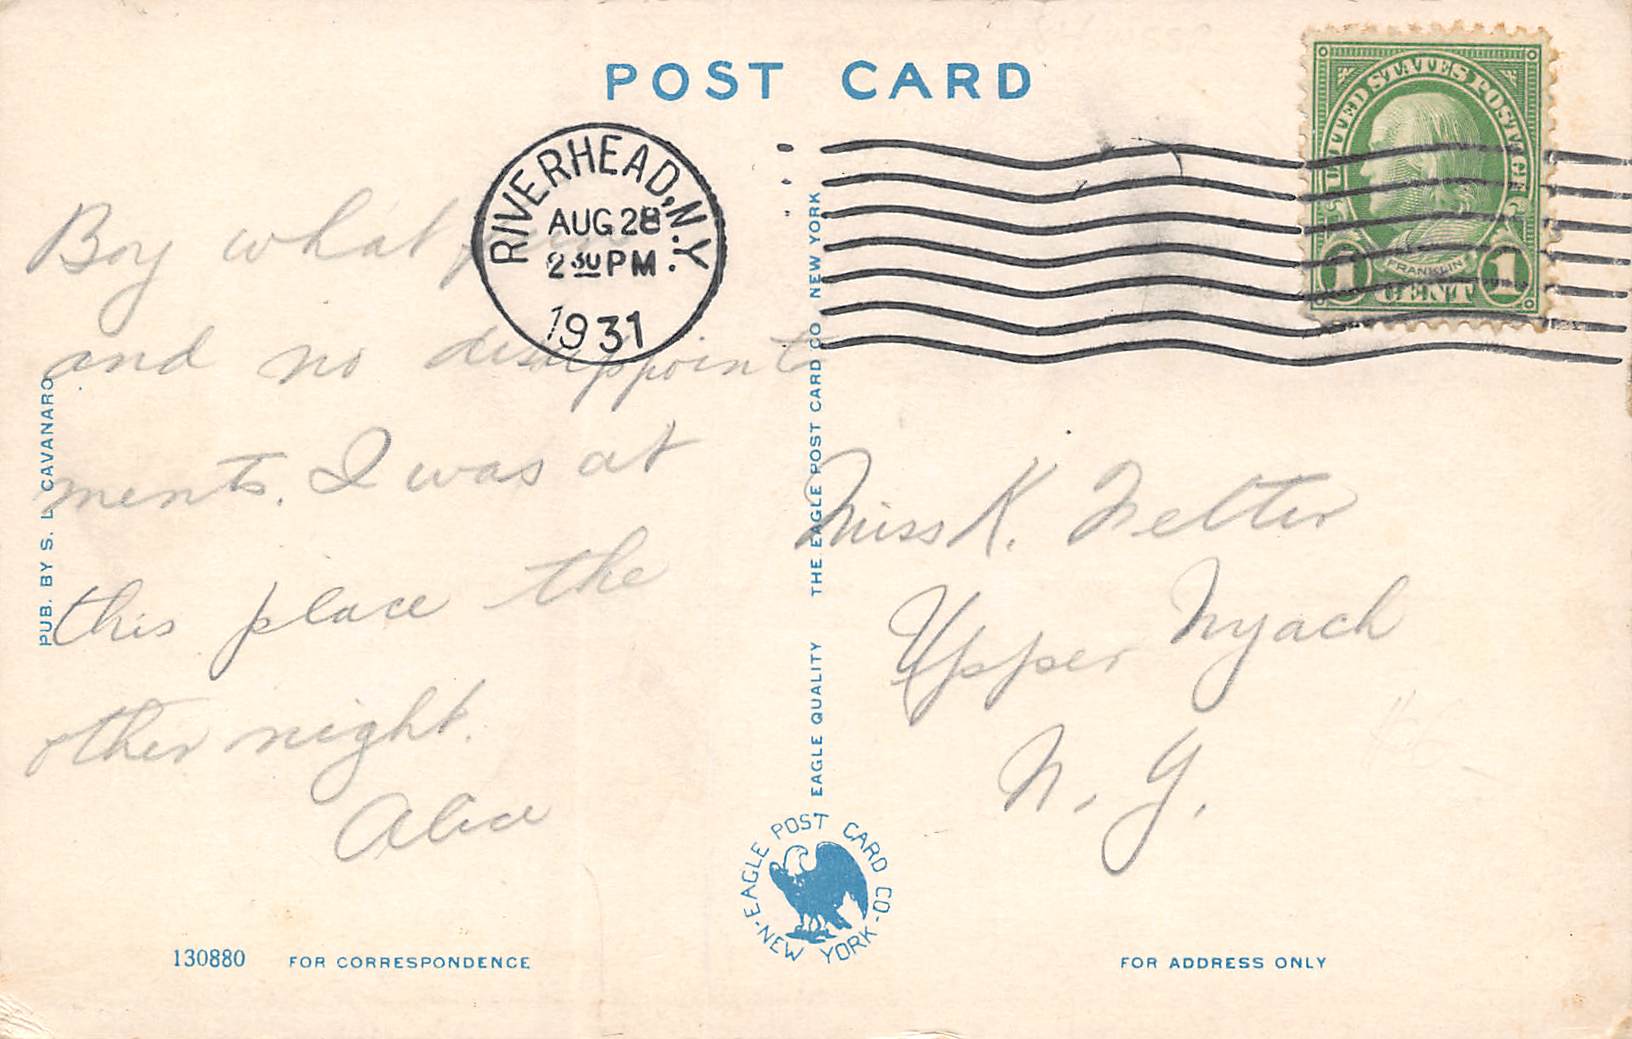 POST CARD
UNITED STATES POSTAGE
FRANKLIN
1 CENT 1
RIVERHEAD, N.Y.
AUG 28
2 30 PM
1931
Boy what
and no disappoint
ments. I was at
this place the
other night.
Alice
Miss K.
Upper Nyack
N. Y.
PUB. BY S. L. CAVANARO
EAGLE QUALITY THE EAGLE POST CARD CO NEW YORK
EAGLE POST CARD CO-
-NEW YORK-
130880 FOR CORRESPONDENCE
FOR ADDRESS ONLY